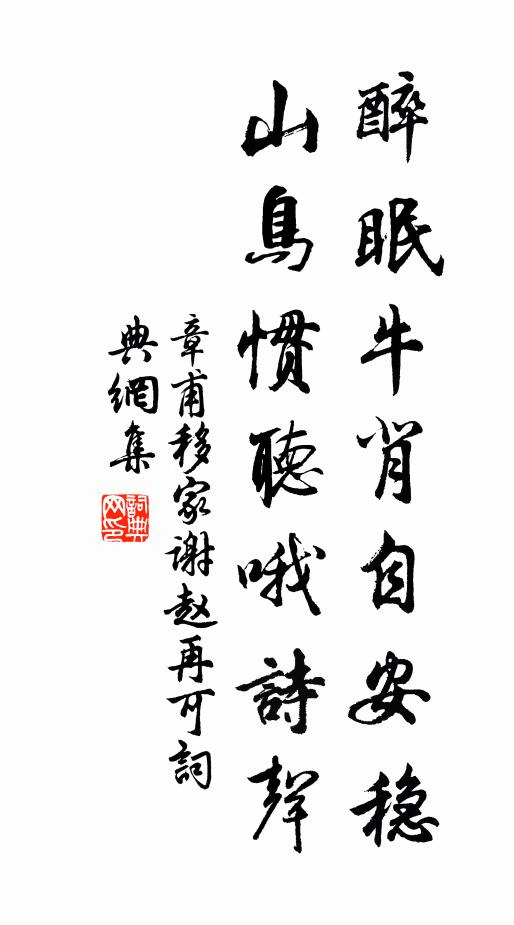 醉眠牛背自安穏
山鳥慣聽哦詩聲
章甫移家谢赵再可詞
典網集
詞典网印